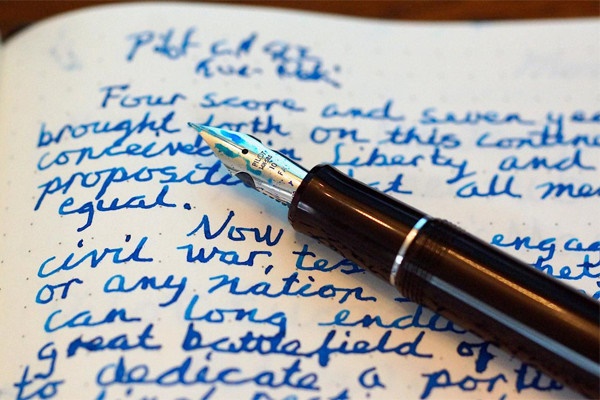 Four score and seven yea
brought forth on this contine
conceived in Liberty and
propositio hat all me
equal.
Now engag
civil war, tes heth
or any nation
can long endu
great battlefield of
to dedicate a porti